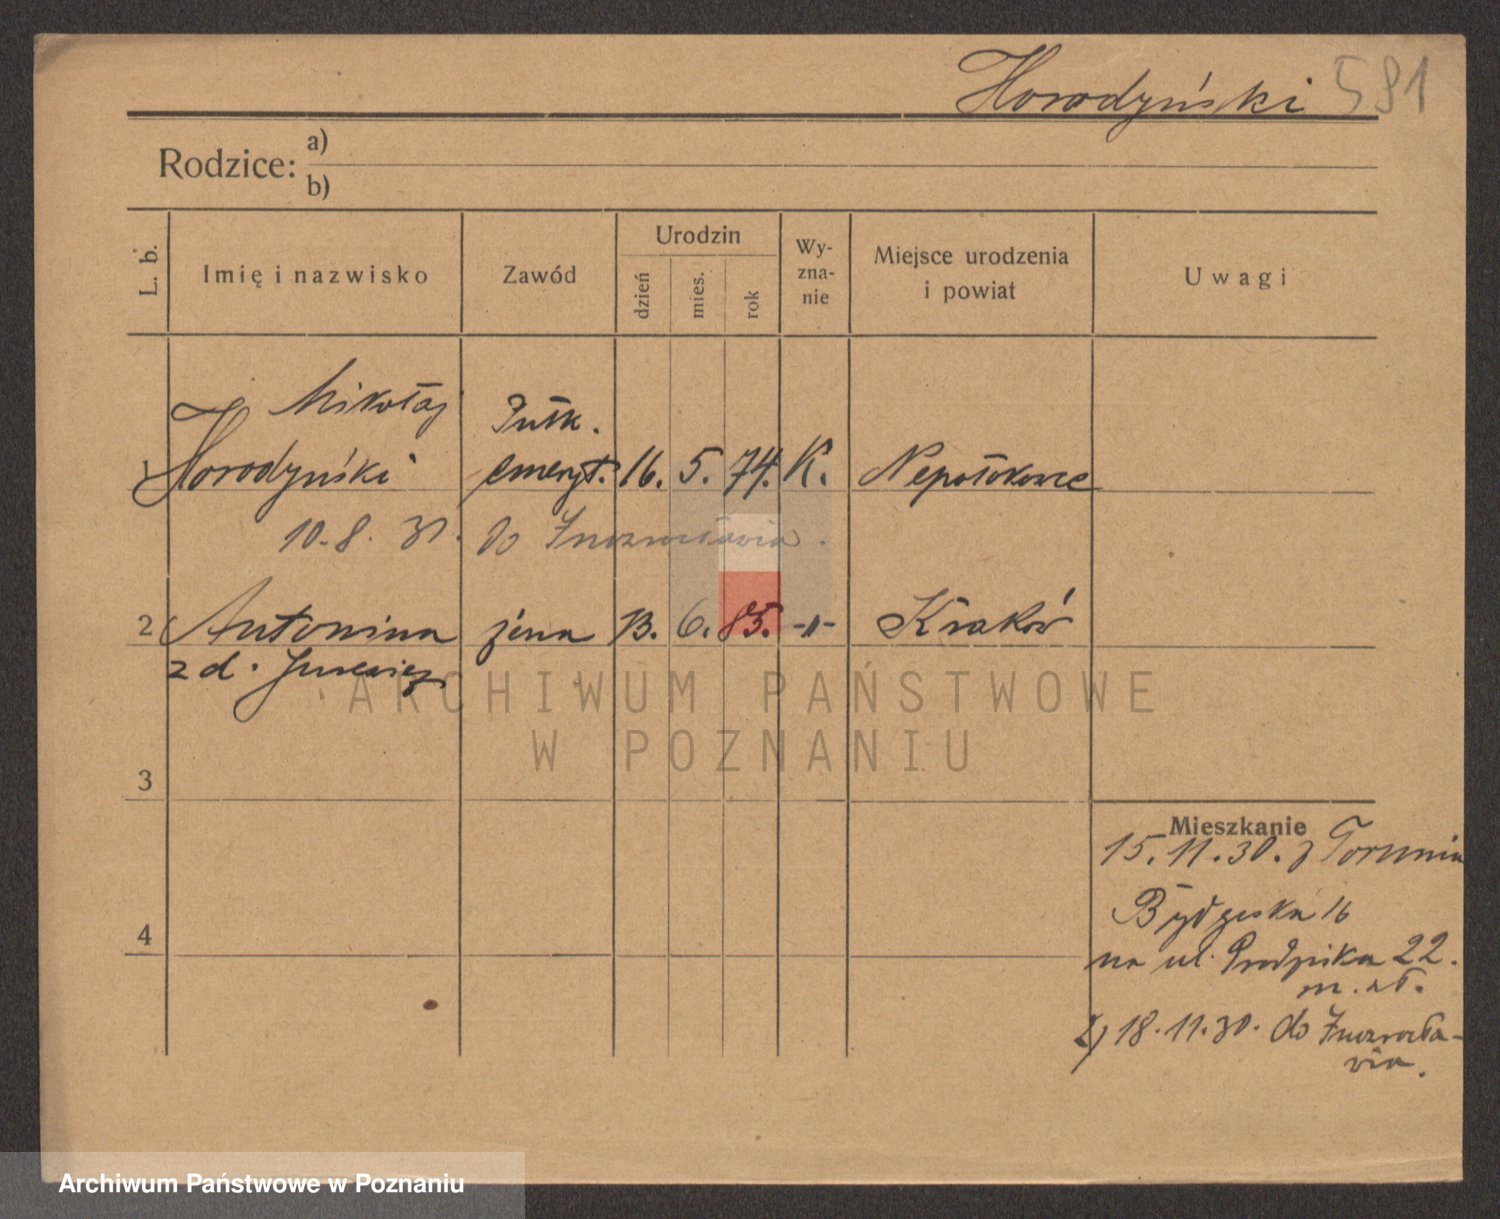 Horodyński 581
Rodzice: a)
b)
L. b.
Imię i nazwisko
Zawód
Urodzin
dzień
mies.
rok
Wy-
zna-
nie
Miejsce urodzenia
i powiat
Uwagi
Mikołaj
Pułk.
1 Horodyński emeryt. 16. 5. 74. K. Nepołokowce
10.8.31. do Inowrocławia.
2 Antonina żona 13. 6. 85. -"- Kraków
z d. Jurewicz
3
4
Mieszkanie
15.11.30. z Torunia
Bydgoska 16
na ul. 22.
2) 18.11.30. do Inowrocła-
wia.
ARCHIWUM PAŃSTWOWE
W POZNANIU
Archiwum Państwowe w Poznaniu